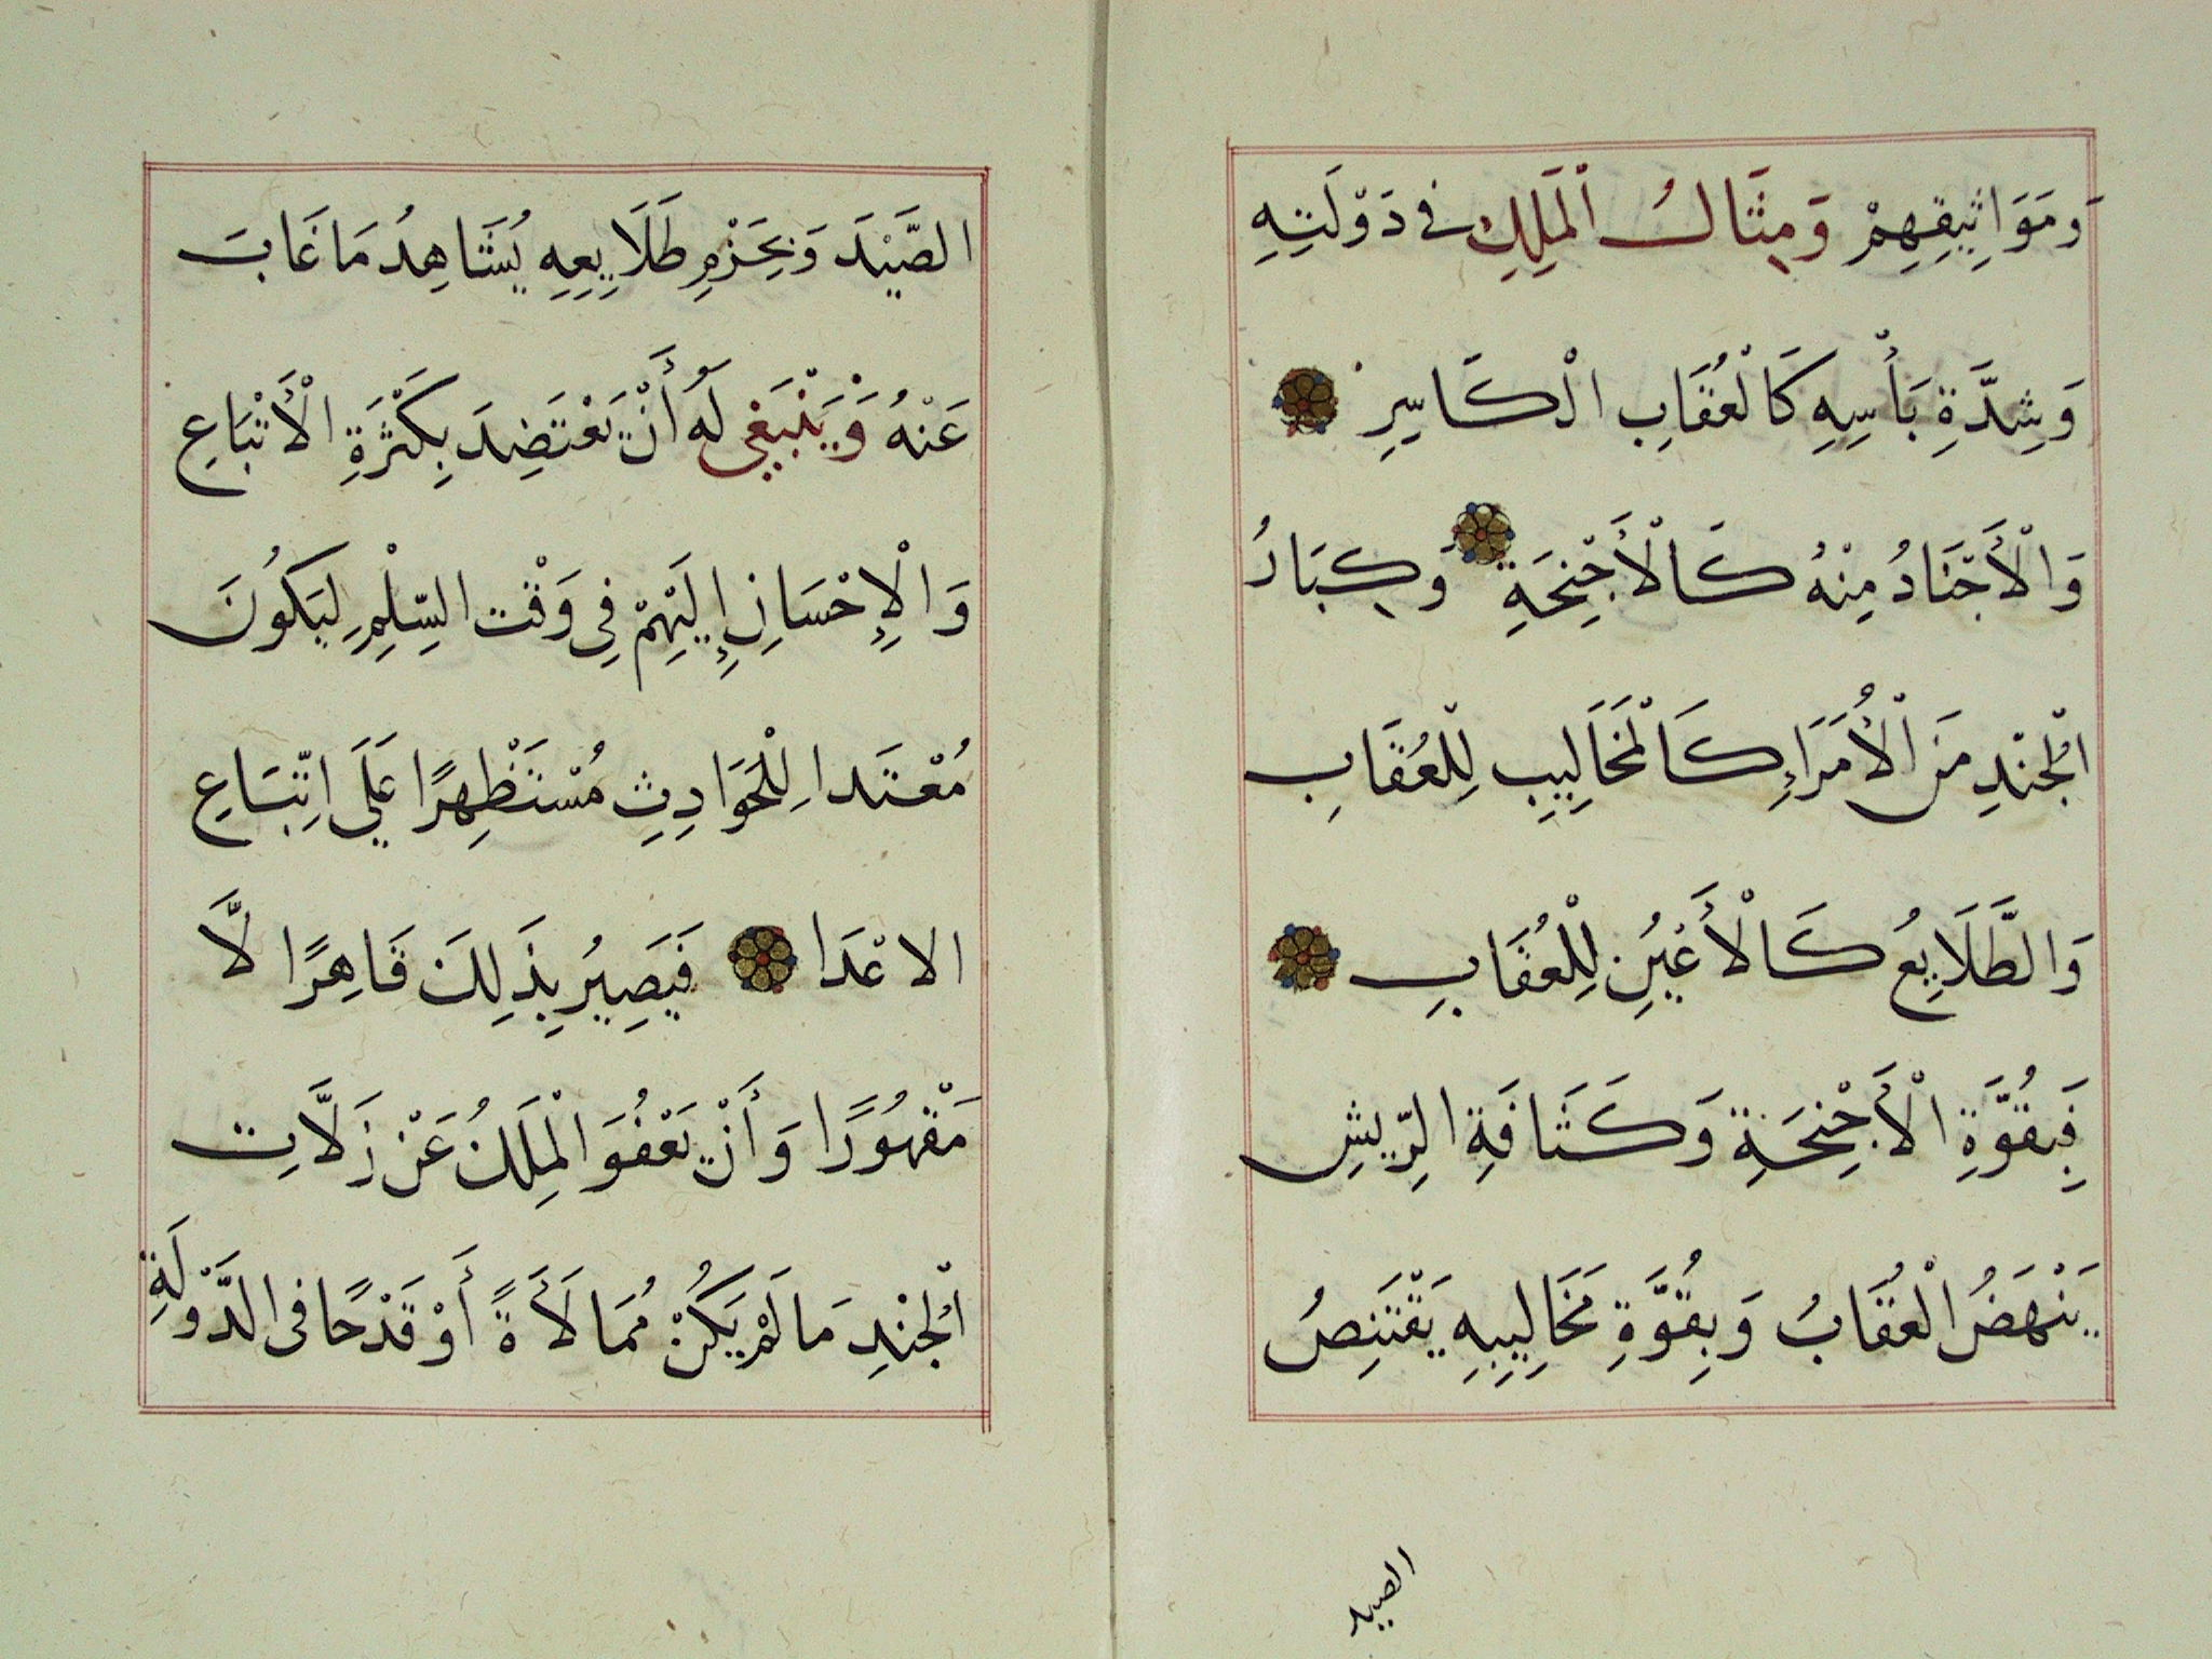 وَمَوَاثِيقِهِمْ وَمِثَالُ الْمَلِكِ في دَوْلَتِهِ
وَشِدَّةِ بَأْسِهِ كَالْعُقَابِ الْكَاسِرِ
وَالْأَجْنَادُ مِنْهُ كَالْأَجْنِحَةِ وَكِبَارُ
الْجُنْدِ مَن الْأُمَرَاءِ كَالْمَخَالِيبِ لِلْعُقَابِ
وَالطَّلَايِعُ كَالْأَعْيُنِ لِلْعُقَابِ
فَبِقُوَّةِ الْأَجْنِحَةِ وَكَثَافَةِ الرِّيشِ
يَنْهَضُ الْعُقَابُ وَبِقُوَّةِ مَخَالِيبِهِ يَقْتَنِصُ
الصيد
الصَّيْدَ وَبِحَزْمِ طَلَايِعِهِ يُشَاهِدُ مَا غَابَ
عَنْهُ وَيَنْبَغِي لَهُ أَنْ يَعْتَضِدَ بِكَثْرَةِ الْأَتْبَاعِ
وَالْإِحْسَانِ إِلَيْهِمْ فِي وَقْت السِّلْمِ لِيَكُونَ
مُعْتَدا لِلْحَوَادِثِ مُسْتَظْهِرًا عَلَي اتِّبَاعِ
الاعْدَا فَيَصِيرُ بِذَلِكَ قَاهِرًا لَّا
مَقْهُورًا وَأَنْ يَعْفُوَ الْمَلِكُ عَنْ زَلَّاتِ
الْجُنْدِ مَا لَمْ يَكُنْ مُمَالَأَةً أَوْ قَدْحًا فى الدَّوْلَةِ